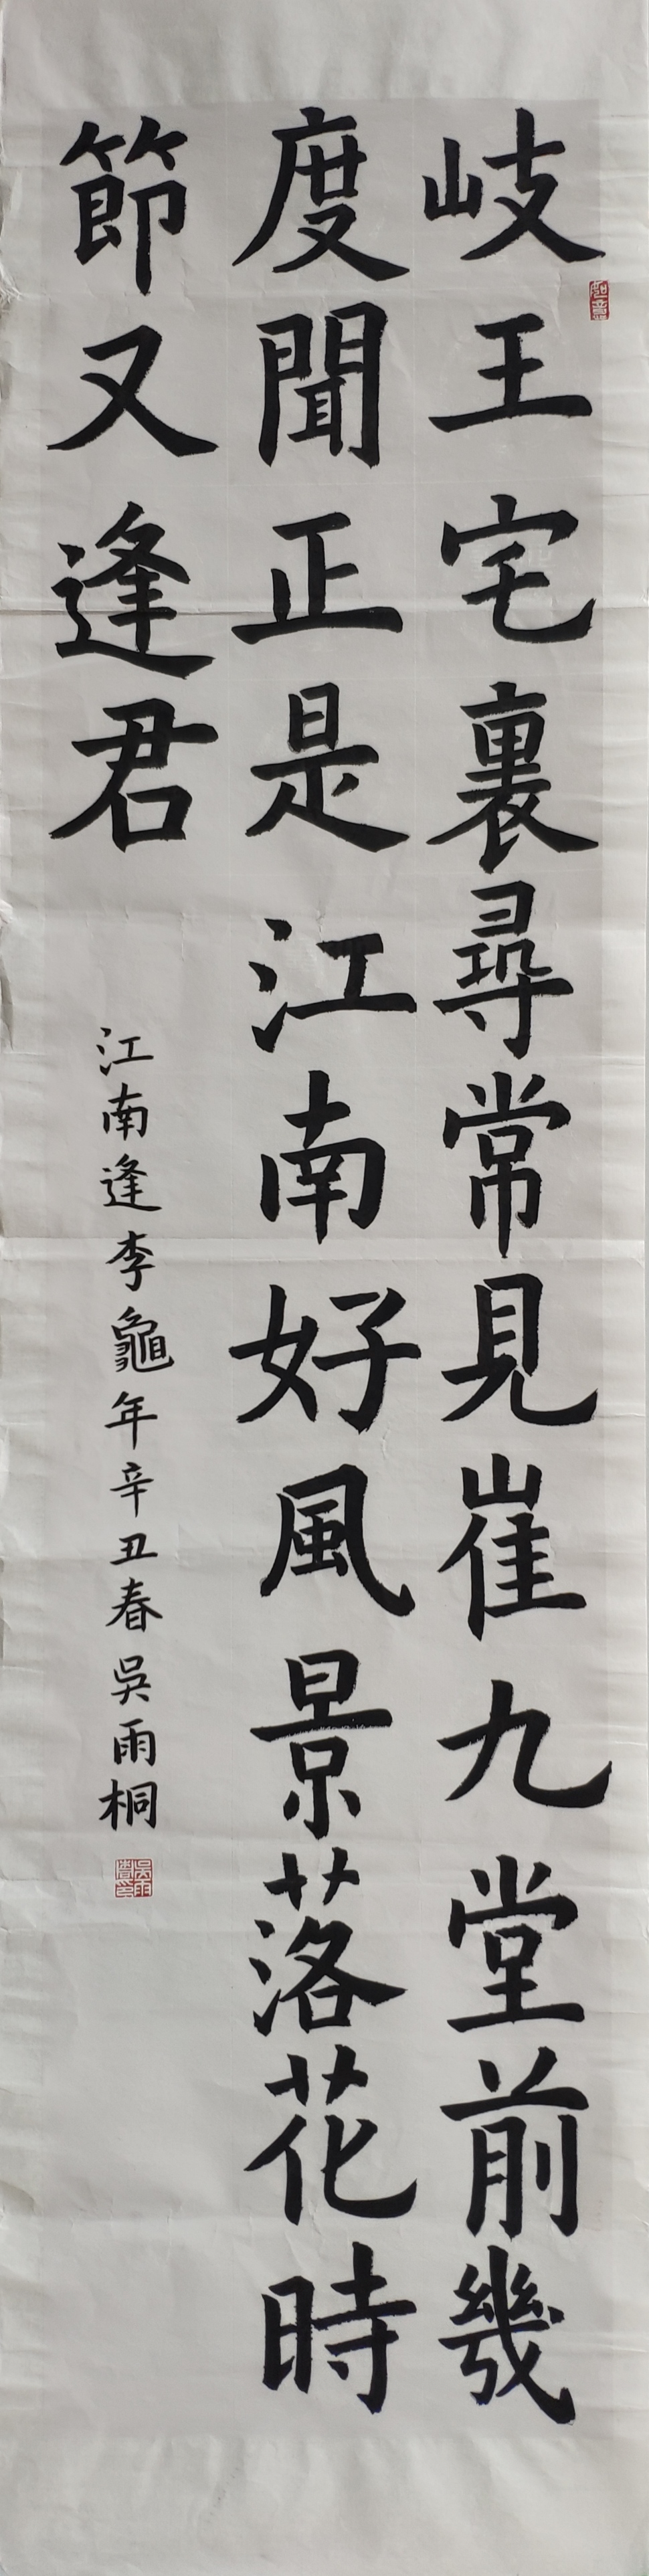 岐王宅裏尋常見崔九堂前幾
度聞正是江南好風景落花時
節又逢君
江南逢李龜年辛丑春吳雨桐
如意